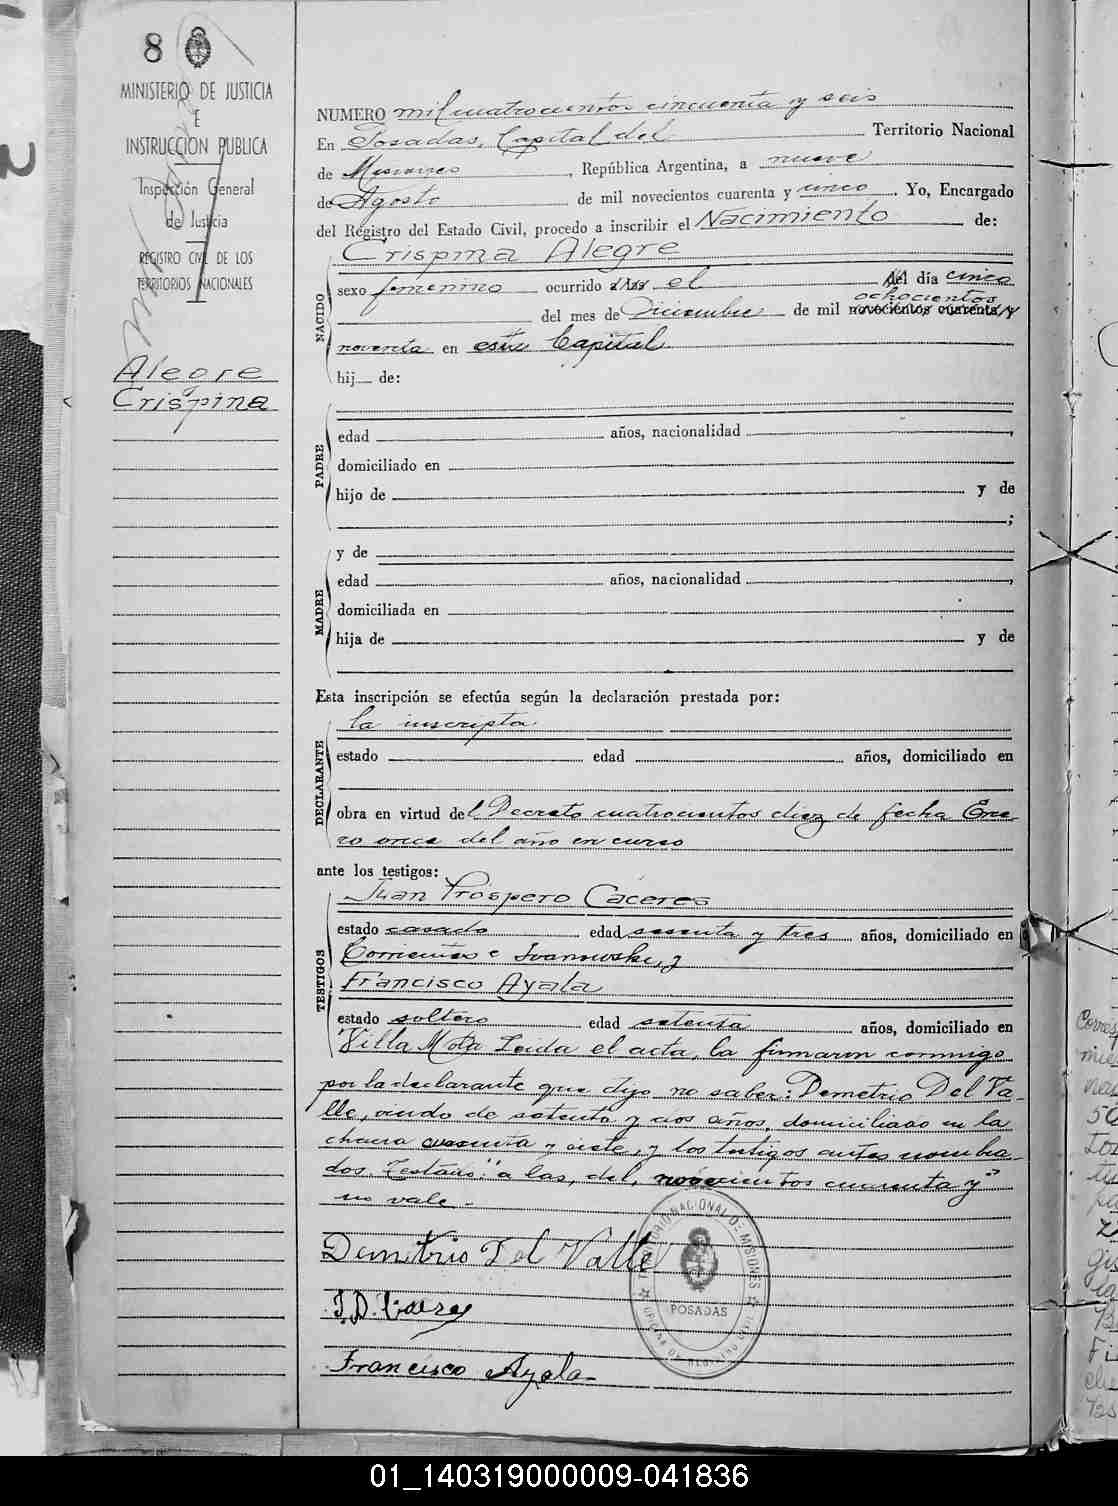 8
MINISTERIO DE JUSTICIA
E
INSTRUCCION PUBLICA
Inspección General
de Justicia
REGISTRO CIVIL DE LOS
TERRITORIOS NACIONALES
Alegre
Crispina
NUMERO mil cuatrocientos cincuenta y seis
En Posadas, Capital del Territorio Nacional
de Misiones, República Argentina, a nueve
de Agosto de mil novecientos cuarenta y cinco. Yo, Encargado
del Registro del Estado Civil, procedo a inscribir el Nacimiento de:
NACIDO
Crispina Alegre
sexo femenino ocurrido a las el del día cinco
ochocientos
del mes de Diciembre de mil novecientos cuarenta y
noventa en esta Capital
hij de:
PADRE
edad años, nacionalidad ,
domiciliado en
hijo de y de
;
MADRE
y de
edad años, nacionalidad ,
domiciliada en
hija de y de
Esta inscripción se efectúa según la declaración prestada por:
DECLARANTE
la inscripta
estado edad años, domiciliado en
obra en virtud del Decreto cuatrocientos diez de fecha Ene-
ro once del año en curso
ante los testigos:
TESTIGOS
Juan Próspero Cáceres
estado casado edad sesenta y tres años, domiciliado en
Corrientes e Ivanowski, y
Francisco Ayala
estado soltero edad setenta años, domiciliado en
Villa Mota Leida el acta, la firmaron conmigo
por la declarante que dijo no saber: Demetrio Del Va-
lle, viudo de setenta y dos años, domiciliado en la
chacra cuarenta y siete, y los testigos antes nombra-
dos. Testado: "a las, del, novecientos cuarenta y"
no vale.-
Demetrio Del Valle
J.P. Cáceres
Francisco Ayala-
TERRITORIO NACIONAL DE MISIONES
POSADAS
01_140319000009-041836